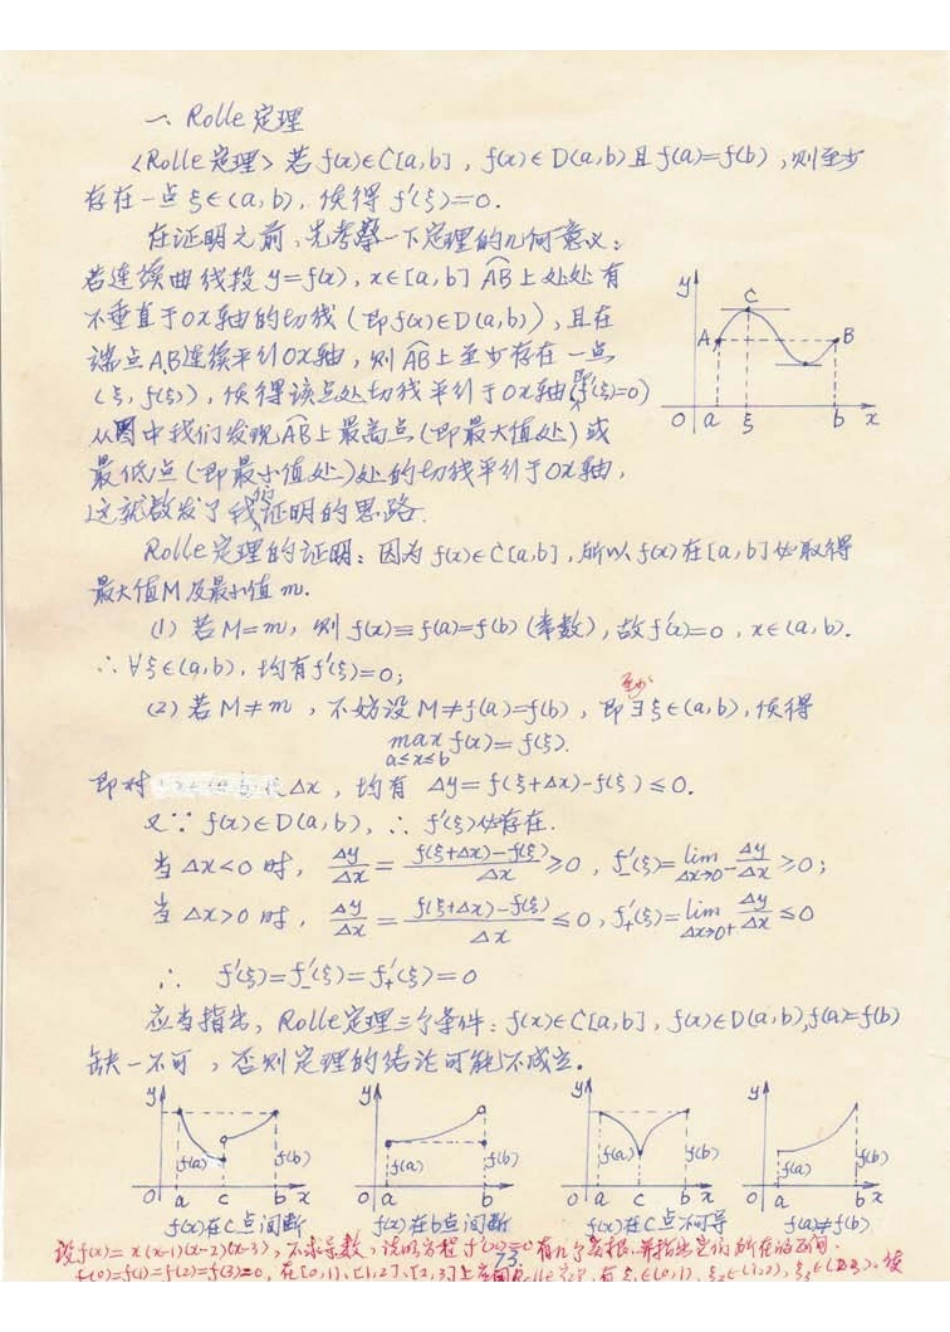 一、Rolle定理
<Rolle定理> 若 f(x)∈C[a,b], f(x)∈D(a,b)且f(a)=f(b),则至少
存在一点 ξ∈(a,b), 使得 f′(ξ)=0.
在证明之前,先考察一下定理的几何意义:
若连续曲线段 y=f(x), x∈[a,b] AB上处处有
不垂直于OX轴的切线(即f(x)∈D(a,b)),且在
端点A,B连续平行OX轴,则AB上至少存在一点
(ξ, f(ξ)), 使得该点处切线平行于OX轴(即f′(ξ)=0)
从图中我们发现AB上最高点(即最大值处)或
最低点(即最小值处)处的切线平行于OX轴,
这就启发了我们证明的思路.
y
C
A
B
O a ξ b x
Rolle定理的证明: 因为 f(x)∈C[a,b], 所以 f(x)在[a,b]必取得
最大值M及最小值 m.
(1) 若M=m, 则 f(x)≡f(a)=f(b)(常数), 故f′(x)=0, x∈(a,b).
∴∀ξ∈(a,b), 均有f′(ξ)=0;
(2) 若M≠m, 不妨设M≠f(a)=f(b), 即至少∃ξ∈(a,b), 使得
max f(x)=f(ξ).
a≤x≤b
即对 Δx, 均有 Δy=f(ξ+Δx)-f(ξ)≤0.
又∵ f(x)∈D(a,b), ∴ f′(ξ)必存在.
当 Δx<0 时, Δy/Δx = f(ξ+Δx)-f(ξ)/Δx ≥0, f′₋(ξ)=lim Δx→0⁻ Δy/Δx ≥0;
当 Δx>0 时, Δy/Δx = f(ξ+Δx)-f(ξ)/Δx ≤0, f′₊(ξ)=lim Δx→0⁺ Δy/Δx ≤0
∴ f′(ξ)=f′₋(ξ)=f′₊(ξ)=0
应当指出, Rolle定理三个条件: f(x)∈C[a,b], f(x)∈D(a,b), f(a)=f(b)
缺一不可, 否则定理的结论可能不成立.
y y y y
f(a) f(b) f(a) f(b) f(a) f(b) f(a) f(b)
O a c b x O a b O a c b x O a b x
f(x)在c点间断 f(x)在b点间断 f(x)在C点不可导 f(a)≠f(b)
设f(x)=x(x-1)(x-2)(x-3), 不求导数, 说明方程 f′(x)=0有几个实根, 并指出它们所在的区间.
73.
f(0)=f(1)=f(2)=f(3)=0, 在[0,1], [1,2], [2,3]上应用Rolle定理, 有ξ₁∈(0,1), ξ₂∈(1,2), ξ₃∈(2,3), 使